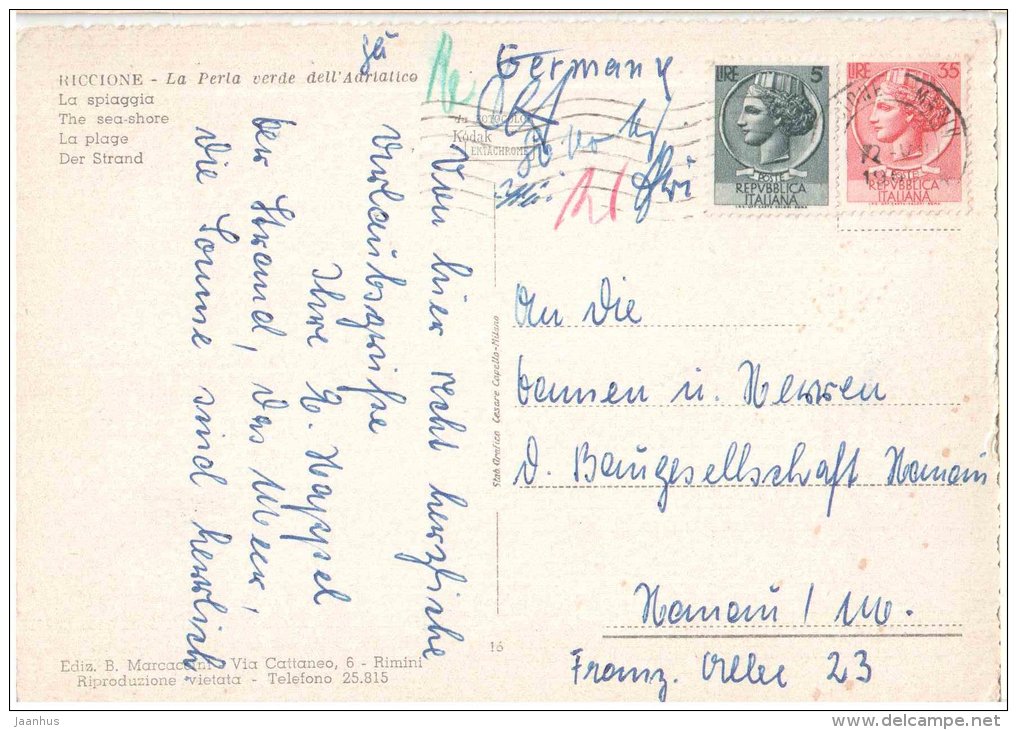 RICCIONE - La Perla verde dell'Adriatico
La spiaggia
The sea-shore
La plage
Der Strand
Germany
da FOTOCOLOR
Kodak
EKTACHROME
LIRE 5
POSTE
REPVBBLICA
ITALIANA
LIRE 35
POSTE
REPVBBLICA
ITALIANA
Von hier recht herzliche
Urlaubsgrüße
Ihre E. Happel
Der Strand, das Meer,
die Sonne sind herrlich
An die
Damen u. Herren
d. Baugesellschaft Hanau
Hanau / M.
Franz. Allee 23
Stab. Grafico Cesare Capello-Milano
16
Ediz. B. Marcaccini - Via Cattaneo, 6 - Rimini
Riproduzione vietata - Telefono 25.815
Jaanhus
www.delcampe.net